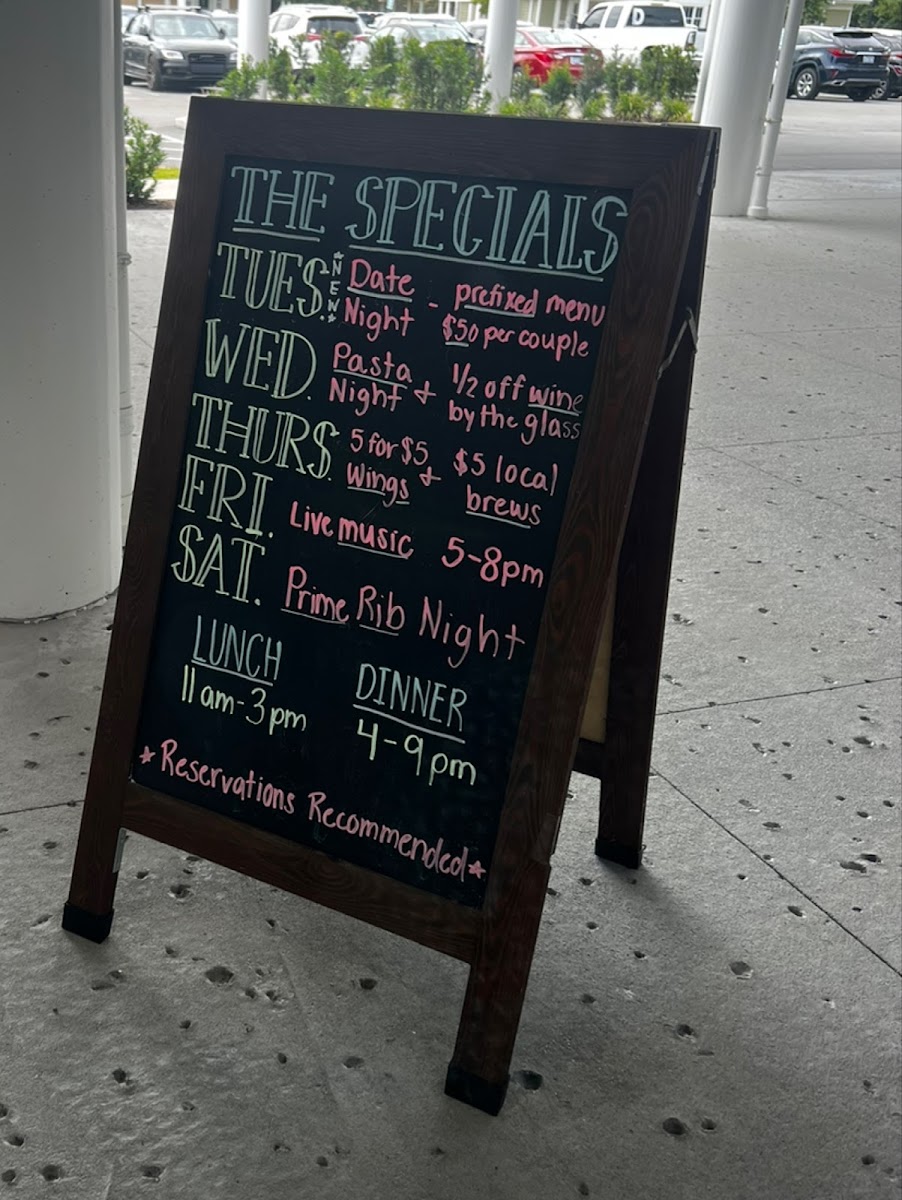 THE SPECIALS
TUES. *NEW* Date Night - prefixed menu $50 per couple
WED. Pasta Night + 1/2 off wine by the glass
THURS. 5 for $5 Wings + $5 local brews
FRI. Live music 5-8pm
SAT. Prime Rib Night
LUNCH
11am-3pm
DINNER
4-9pm
*Reservations Recommended*